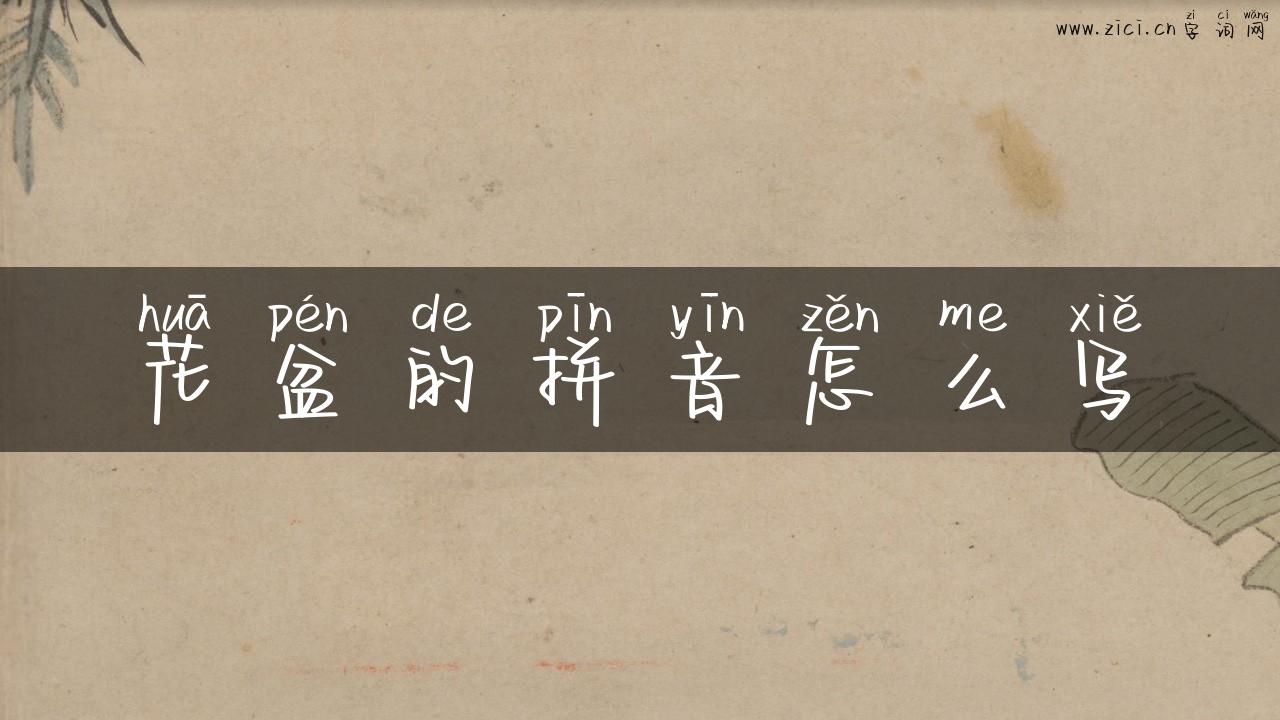 zì cí wǎng
www.zici.cn 字 词 网
huā pén de pīn yīn zěn me xiě
花 盆 的 拼 音 怎 么 写